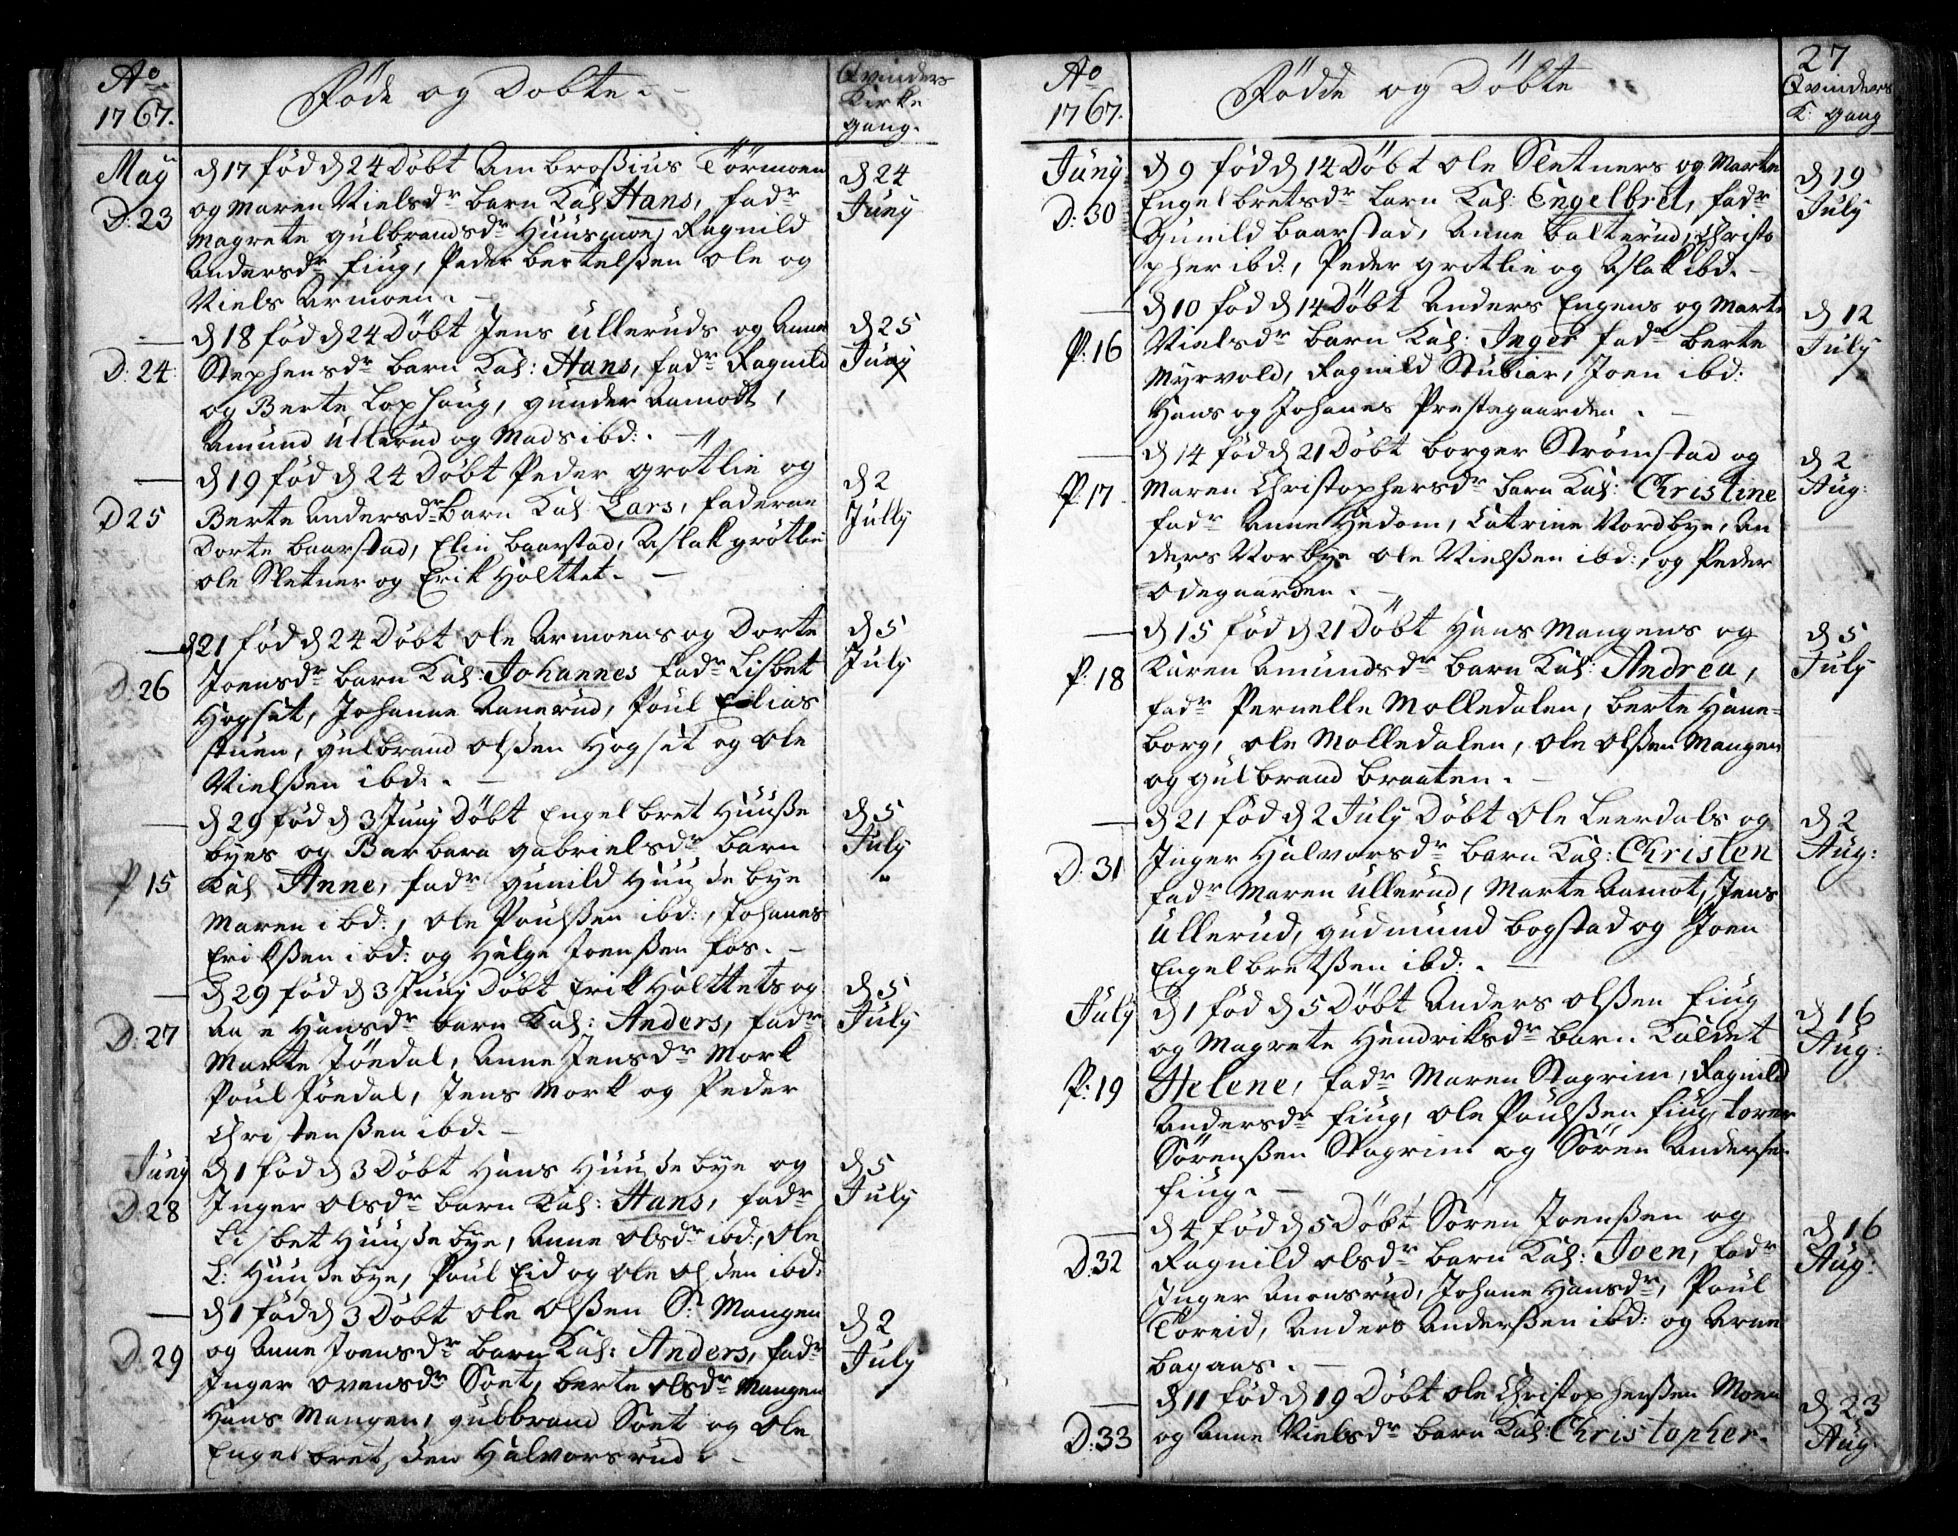 Aº
1767.
Föde og Döbte.
Qvinders
Kirke
gang.
May
D: 23
d 17 fød d 24 Döbt Ambrosius Törmoen
og Maren Nielsdr barn Kal Hans, fadr
Magrete gulbrandsdr Huusmoe, Ragnild
Andersdr fiug, Peder Bertelßen ole og
Niels Armoen.
d 24
Juny
D: 24
d 18 fød d 24 Döbt Jens Ulleruds og Anne
Stephensdr barn Kal: Hans, fadr Ragnild
og Berte Lophaug, gunder Aamodt,
Amund Ullerud og Mads ibd:.
d 25
Juny
D 25
d 19 fød d 24 Döbt Peder grötlie og
Berte Andersdr barn Kal Lars, faderne
Dorte baarstad, Elin baarstad, Aslak grötlie
ole Sletner og Erik Holttet.
d 2
July
D: 26
d 21 fød d 24 Döbt ole Armoens og Dorte
Joensdr barn Kal: Johannes fadr Lisbet
Hogset, Johanne Aanerud, Poul Elias
stuen, gulbrand olßen Hogset og ole
Nielßen ibd:.
d 5
July
P 15
d 29 fød d 3 Juny Döbt Engelbret Huuße
byes og Barbara gabrielsdr barn
Kal Anne, fadr gunild Huusebye
Maren ibd:, ole Poulßen ibd:, Johanes
Erikßen ibd: og Helge Joenßen fos.
d 5
July
D: 27
d 29 fød d 3 Juny Döbt Erik Holttets og
Aa e Hansdr barn Kal: Anders, fadr
Marte Töedal, Anne Jensdr Mork
Poul Töedal, Jens Mork og Peder
Christenßen ibd.
d 5
July
Juny
D: 28
d 1 fød d 3 Döbt Hans Huusebye og
Inger olsdr barn Kal: Hans, fadr
Lisbet Huusebye, Anne olsdr ibd:, ole
L: Huusebye, Poul Eid og ole olsen ibd:
d 5
July
D: 29
d 1 fød d 3 Döbt ole olßen S: Mangen
og Anne Joensdr barn Kal: Anders, fadr
Inger ovensdr Soet, berte olsdr Mangen
Hans Mangen, gubbrand Soet og ole
Engelbretsen Halvorsrud.
d 2
July
27
Aº
1767.
Födde og Döbte
Qvinders
K: gang
Juny
D: 30
d 9 fød d 14 Döbt ole Sletners og Marte
Engelbretsdr barn Kal: Engelbret, fadr
Gunild baarstad, Anne balterud, Christo
pher ibd:, Peder grotlie og Aslak ibd.
d 19
July
P: 16
d 10 fød d 14 Döbt Anders Engens og Marte
Nielsdr barn Kal: Inger fadr berte
Myrvold, Ragnild Stubiar, Joen ibd:
Hans og Johanes Prestegaarden.
d 12
July
P: 17
d 14 fød d 21 Döbt borger Strömstad og
Maren Christophersdr barn Kal: Christine
fadr Anne Hedom, Catrine Nordbye, An
ders Norbye ole Nielßen ibd:, og Peder
Ödegaarden.
d 2
Aug:
P: 18
d 15 fød d 21 Döbt Hans Mangens og
Karen Amundsdr barn Kal: Andrea,
fadr Pernelle Molledalen, berte Hane-
borg, ole Molledalen, ole olßen Mangen
og gulbrand braaten.
d 5
July
D: 31
d 21 fød d 2 July Döbt Ole Leerdals og
Inger Halvorsdr barn Kal: Christen
fadr Maren Ullerud, Marte Aamot, Jens
Ullerud, gudmund bogstad og Joen
Engelbretßen ibd:.
d 2
Aug:
July
P: 19
d 1 fød d 5 Döbt Anders olßen fiug
og Magrete Hendriksdr barn Kaldet
Helene, fadr Maren Skagrim, Ragnild
Andersdr fiug, ole Poulßen fiug, torer
Sörenßen Skagrim og Sören Anderse
fiug.
d 16
Aug:
D: 32
d 4 fød d 5 Döbt Sören Joenßen og
Ragnild olsdr barn Kal: Joen, fadr
Inger Anonsrud, Johane Hansdr, Poul
Toreid, Anders Anderßen ibd: og Arne
bagaas.
d 16
Aug:
D: 33
d 11 fød d 19 Döbt ole Christopherßen Moen
og Anne Nielsdr barn Kal: Christopher.
d 23
Aug